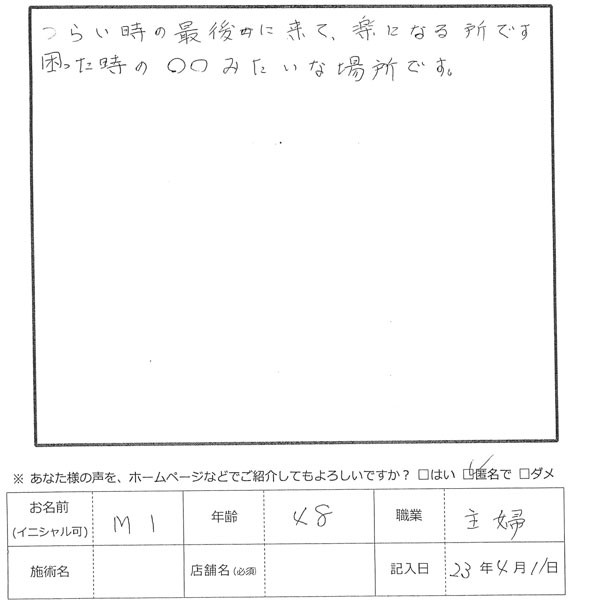 つらい時の最後に来て、楽になる所です
困った時の〇〇みたいな場所です。
※ あなた様の声を、ホームページなどでご紹介してもよろしいですか？ □はい ☑匿名で □ダメ
お名前 (イニシャル可) M I 年齢 48 職業 主婦
施術名 店舗名(必須) 記入日 23年4月11日